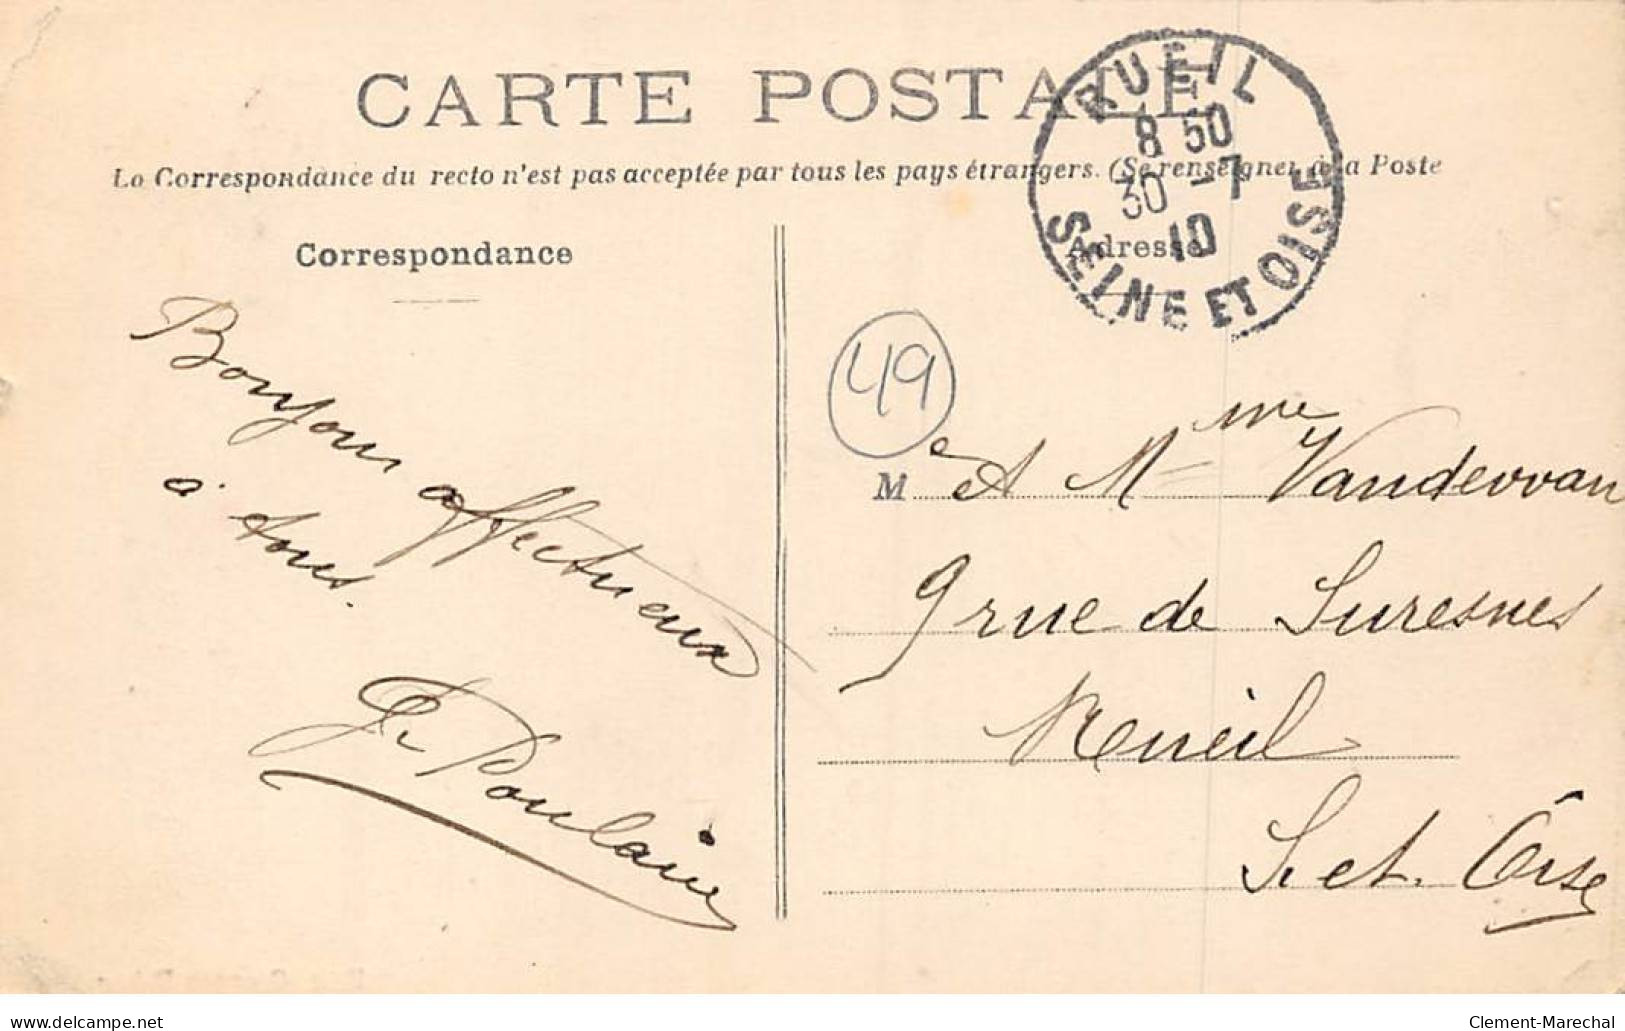 CARTE POSTALE
La Correspondance du recto n'est pas acceptée par tous les pays étrangers. (Se renseigner à la Poste
RUEIL
8 50
30 -7
10
SEINE ET OISE
Correspondance
Adresse
Bonjour affectueux
à tous.
Poulain
49
M et Mme Vandevvan
9 rue de Suresnes
Rueil
S. et Oise
delcampe.net
Clement-Marechal